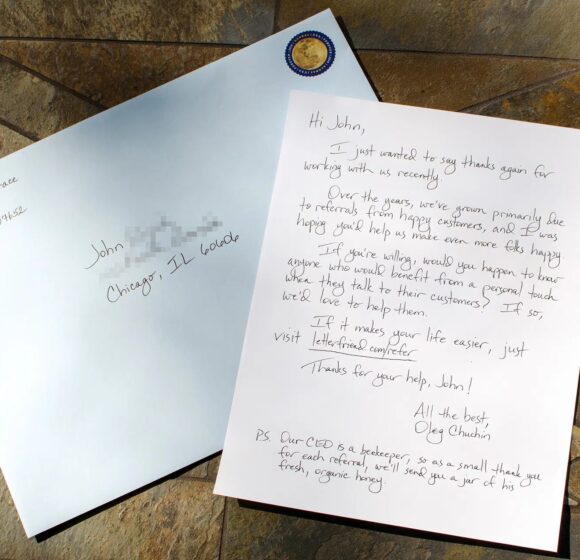 07652
John
Chicago, IL 60606
Hi John,
I just wanted to say thanks again for
working with us recently.
Over the years, we've grown primarily due
to referrals from happy customers, and I was
hoping you'd help us make even more folks happy
If you're willing, would you happen to know
anyone who would benefit from a personal touch
when they talk to their customers? If so,
we'd love to help them.
If it makes your life easier, just
visit letterfriend.com/refer
Thanks for your help, John!
All the best,
Oleg Chuchin
P.S. Our CEO is a beekeeper, so as a small thank you
for each referral, we'll send you a jar of his
fresh, organic honey.